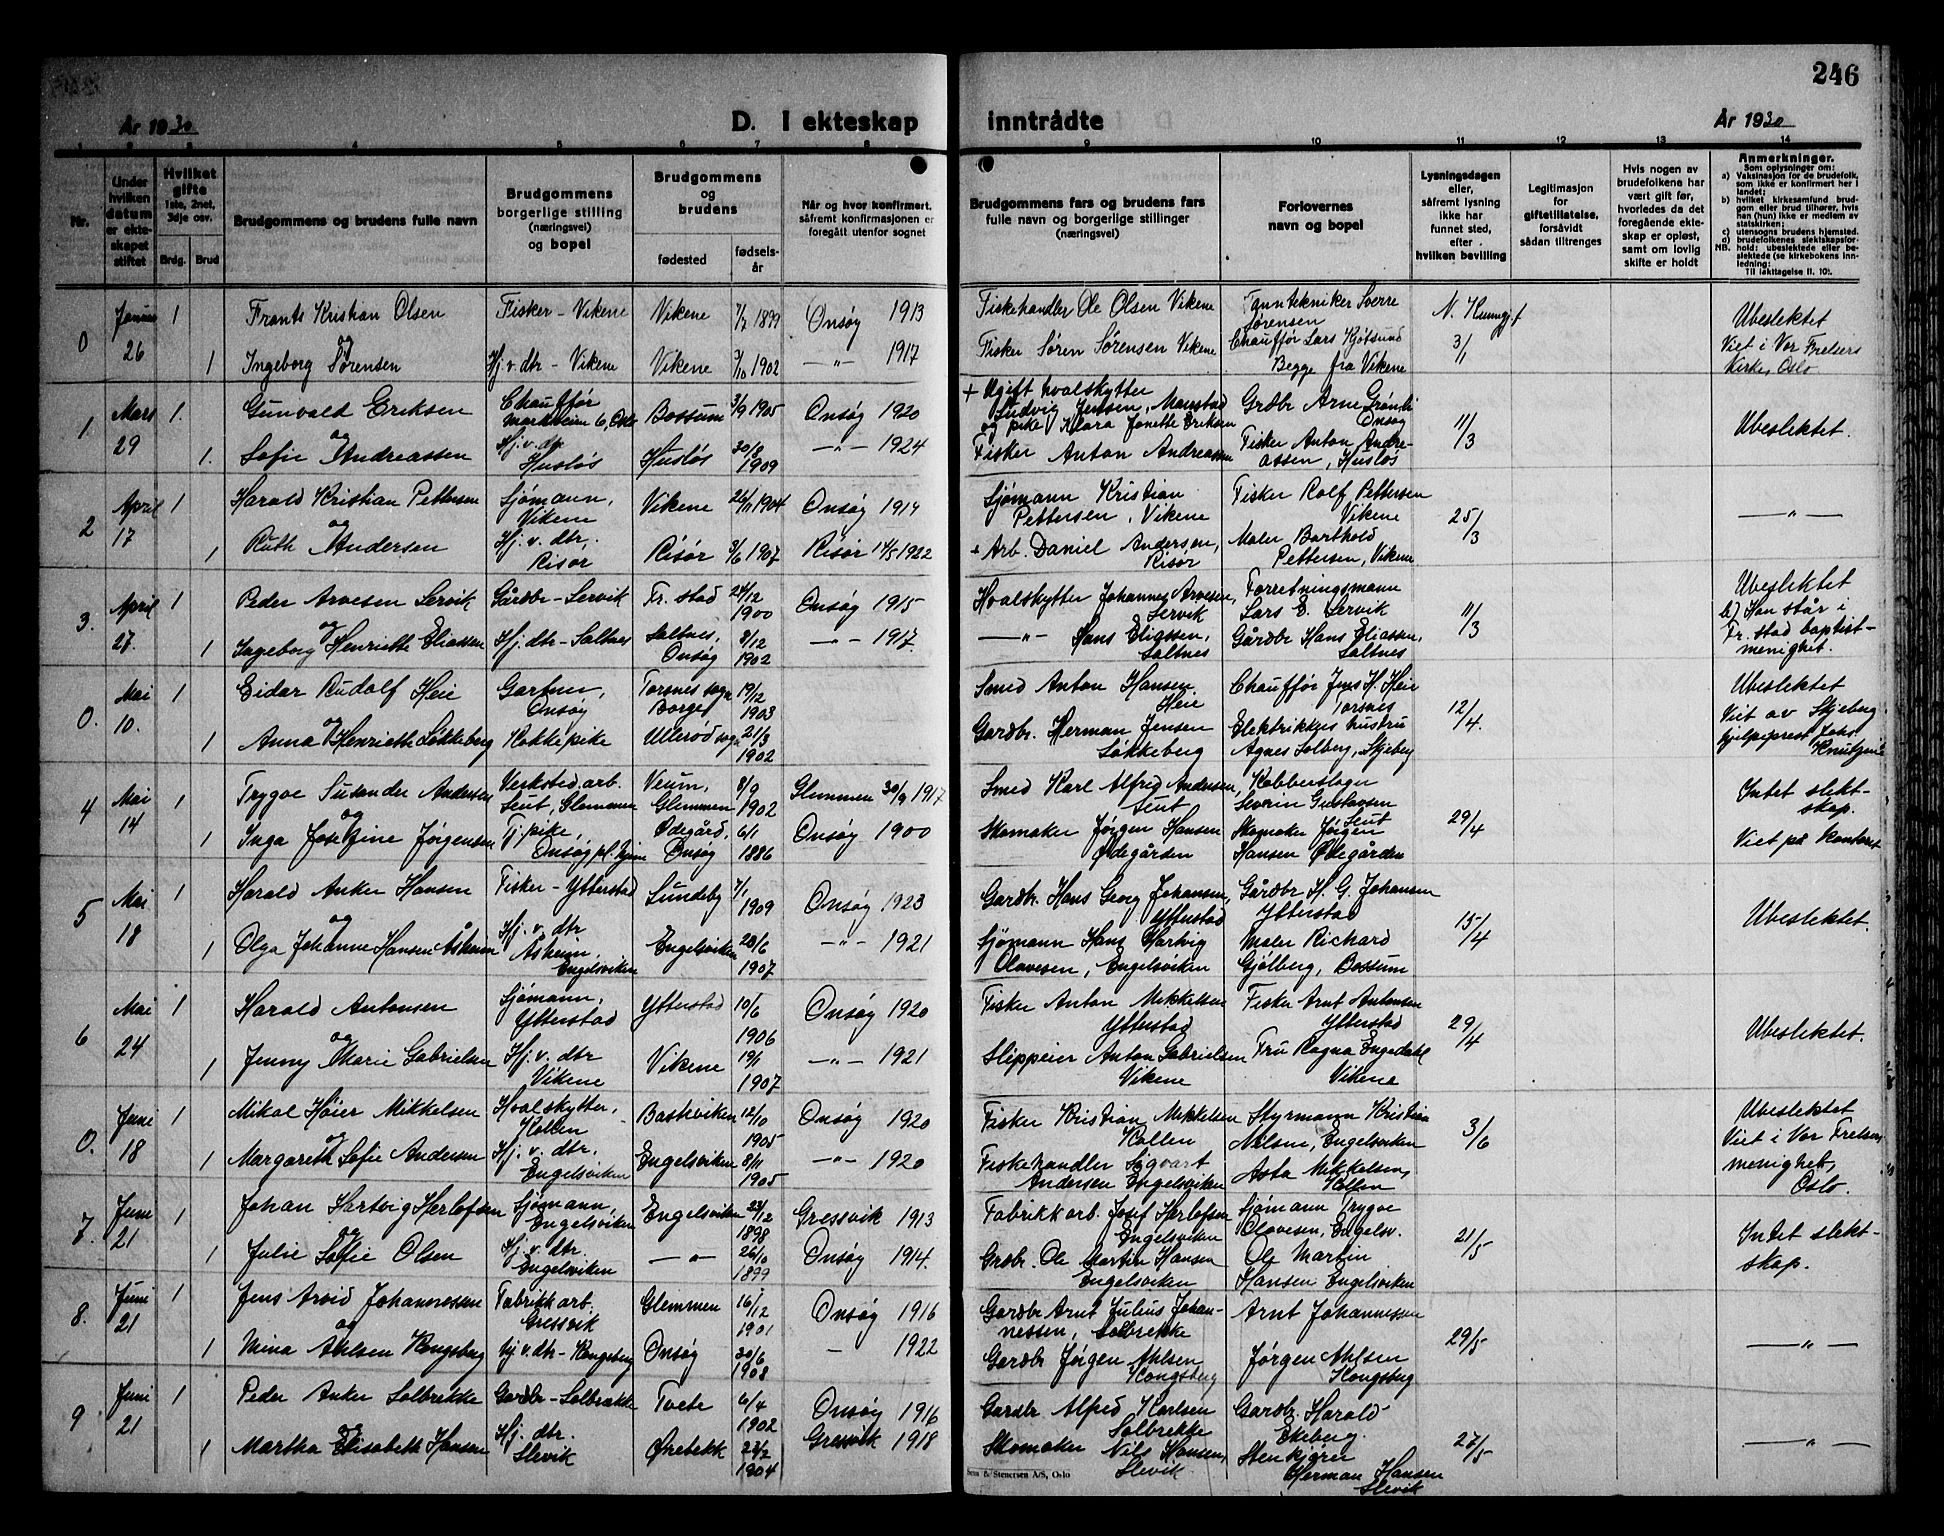 246
År 1930
D. I ekteskap
inntrådte
År 1930
1 2 3 4 5 6 7 8 9 10 11 12 13 14
Nr.
Under hvilken datum er ekteskapet stiftet
Hvilket gifte 1ste, 2net, 3dje osv.
Brdg. Brud
Brudgommens og brudens fulle navn
Brudgommens borgerlige stilling (næringsvei) og bopel
Brudgommens og brudens
fødested
fødselsår
Når og hvor konfirmert, såfremt konfirmasjonen er foregått utenfor sognet
Brudgommens fars og brudens fars fulle navn og borgerlige stillinger (næringsvei)
Forlovernes navn og bopel
Lysningsdagen eller, såfremt lysning ikke har funnet sted, efter hvilken bevilling
Legitimasjon for giftetillatelse, forsåvidt sådan tiltrenges
Hvis nogen av brudefolkene har vært gift før, hvorledes da det foregående ekteskap er opløst, samt om lovlig skifte er holdt
Anmerkninger.
Som oplysninger om:
a) Vaksinasjon for de brudefolk, som ikke er konfirmert her i landet;
b) hvilket kirkesamfund brudgom eller brud tilhører, hvis han (hun) ikke er medlem av statskirken;
c) utensogns brudens hjemsted.
d) brudefolkenes slektskapsforhold: ubeslektede eller beslektede (se kirkebokens innledning;
NB.
Til iakttagelse II. 10).
0 Januar 26 1 Frants Kristian Olsen Fisker - Vikene Vikene 7/7 1899 Onsøy 1913 Fiskehandler Ole Olsen Vikene Tanntekniker Sverre Sørensen Ubeslektet
og
1 Ingeborg Sørensen Hj.v.dtr - Vikene Vikene 3/10 1902 -"- 1917 Fisker Søren Sørensen Vikene Chauffør Lars Kjøtsund Begge fra Vikene 3/1 Viet i Vor Frelsers Kirke, Oslo
1 Mars 29 1. Gunvald Eriksen Chauffør Markveien 6, Oslo Bossum 3/9 1905 Onsøy 1920 + Ugift hvalskytter Ludvig Jensen, Manstad og pike Klara Jonette Eriksen Grdbr Arne Grønli Onsøy 11/3 Ubeslektet.
og
1. Sofie Andreassen Hj.v.dtr Husløs Husløs 30/8 1909 -"- 1924 Fisker Anton Andreassen Fisker Anton Andreassen, Husløs
2 April 17 1 Harald Kristian Pettersen Sjømann, Vikene Vikene 26/11 1904 Onsøy 1919 Sjømann Kristian Pettersen, Vikene Fisker Rolf Pettersen Vikene 25/3 -"-
og
1 Ruth Andersen Hj.v.dtr. Risør Risør 3/6 1907 Risør 14/5 1922 + Arb. Daniel Andersen, Risør Maler Barthold Pettersen, Vikene
3. April 27. 1 Peder Arvesen Lervik Gårdbr-Lervik Fr.stad 24/12 1900 Onsøy 1915 Hvalskytter Johannes Arvesen, Lervik Forretningsmann Lars E. Lervik 11/3 Ubeslektet b) Han står i Fr.stad baptistmenighet.
og
1 Ingeborg Henriette Eliassen Hj.dtr-Saltnes Saltnes, Onsøy 8/12 1902 -"- 1917. -"- Hans Eliassen, Saltnes Gårdbr Hans Eliassen, Saltnes
0. Mai 10. 1 Eidar Rudolf Heie Gartner, Onsøy Torsnes sogn Borge 19/12 1903 Smed Anton Hansen Heie Chauffør Jens H. Heie Torsnes 12/4. Ubeslektet
og
1 Anna Henriette Løkkeberg Kokkepike Ullerød sogn 21/3 1902 Gardbr. Herman Jensen Løkkeberg Elektrikkers hustru Agnes Solberg, Skjeberg Viet av Skjeberg hjelpeprest Johs.
4 Mai 14 1 Trygve Susander Andersen Verksted.arb. Leut, Glemmen Veum, Glemmen 8/9 1902 Glemmen 30/9 1917 Smed Karl Alfred Andersen, Leut Severin Gustavsen Leut 29/4 Intet slektskap.
og
1 Inga Josefine Jørgensen Tj.pike, Onsøy Ødegård, Onsøy 6/1 1886 Onsøy 1900 Skomaker Jørgen Hansen Ødegården Skomaker Jørgen Hansen Ødegården Viet på kontoret
5 Mai 18 1 Harald Anker Hansen Fisker - Ytterstad Sundeby 7/1 1909 Onsøy 1923 Gardbr. Hans Georg Johansen, Ytterstad Gårdbr H. G. Johansen Ytterstad 15/4 Ubeslektet.
og
1 Olga Johanne Hansen Åsheim Hj.v.dtr Åsheim, Engelsviken Engelsviken 28/6 1907 -"- 1921 Sjømann Hans Hartvig Olavesen, Engelsviken Maler Richard Gjølberg, Bossum
6 Mai 24 1 Harald Antonsen Sjømann, Ytterstad Ytterstad 10/6 1906 Onsøy 1920 Fisker Anton Mikkelsen Ytterstad Fisker Arnt Antonsen Ytterstad 29/4 Ubeslektet.
og
1 Jenny Marie Gabrielsen Hj.v.dtr Vikene Vikene 19/1 1907 -"- 1921 Slippeier Anton Gabrielsen Vikene Fru Ragna Engedahl Vikene
0. Juni 18 1 Mikal Høier Mikkelsen Hvalskytter, Kollen Bastviken 12/10 1905 Onsøy 1920 Fisker Kristian Mikkelsen Kollen Styrmann Kristian Nilsen, Engelsviken 3/6 Ubeslektet
og
1 Margareth Sofie Andersen Hj.v.dtr. Engelsviken Engelsviken 8/11 1905 -"- 1920 Fiskehandler Sigvart Andersen Engelsviken Asta Mikkelsen, Kollen Viet i Vor Frelsers menighet, Oslo.
7. Juni 21 1 Johan Hartvig Herlofsen Sjømann, Engelsviken Engelsviken 23/12 1898 Gressvik 1913 Fabrikkarb. Josef Herlofsen Engelsviken Sjømann Trygve Olavesen, Engelsv. 21/5 Intet slektskap.
og
1 Julie Sofie Olsen Hj.v.dtr. Engelsviken -"- 26/10 1899 Onsøy 1914. Grdbr. Ole Martin Hansen Engelsviken Ole Martin Hansen Engelsviken
8. Juni 21 1 Jens Arvid Johannessen Fabrikkarb. Gressvik Glemmen 16/12 1901 Onsøy 1916 Gardbr Arnt Julius Johannessen, Solbrekke Arnt Johannessen 29/5 -"-
og
1 Mina Ahlsen Kongsberg hj.v.dtr-Kongsberg Onsøy 30/6 1908 - 1922 Gardbr Jørgen Ahlsen Kongsberg Jørgen Ahlsen Kongsberg
9 Juni 21 1 Peder Anker Solbrekke Gardbr-Solbrekke Tvete 6/4 1902 Onsøy 1916 Gardbr Alfred Karlsen Solbrekke Gardbr. Harald Ekeberg. 27/5 -"-
og
1 Martha Elisabeth Hansen Hj.dtr. Slevik Ørebekk 23/2 1904 Gressvik 1918 Skomaker Nils Hansen, Slevik Stenkjører Herman Hansen Slevik
& Stenersen A/S, Oslo